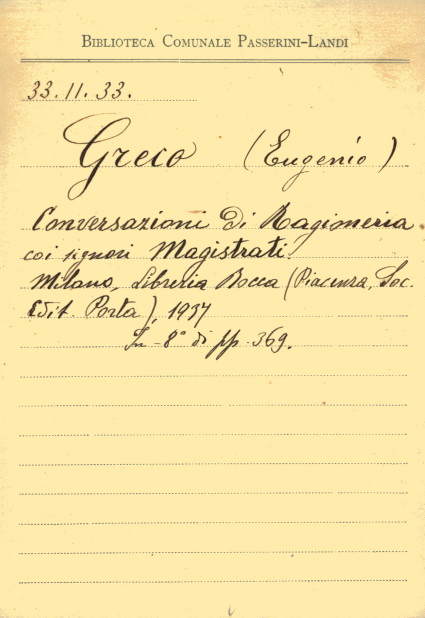 BIBLIOTECA COMUNALE PASSERINI-LANDI
33.11.33.
Greco (Eugenio)
Conversazioni di Ragioneria
coi signori Magistrati.
Milano, Libreria Bocca (Piacenza, Soc.
Edit. Porta), 1937
In-8° di pp. 369.